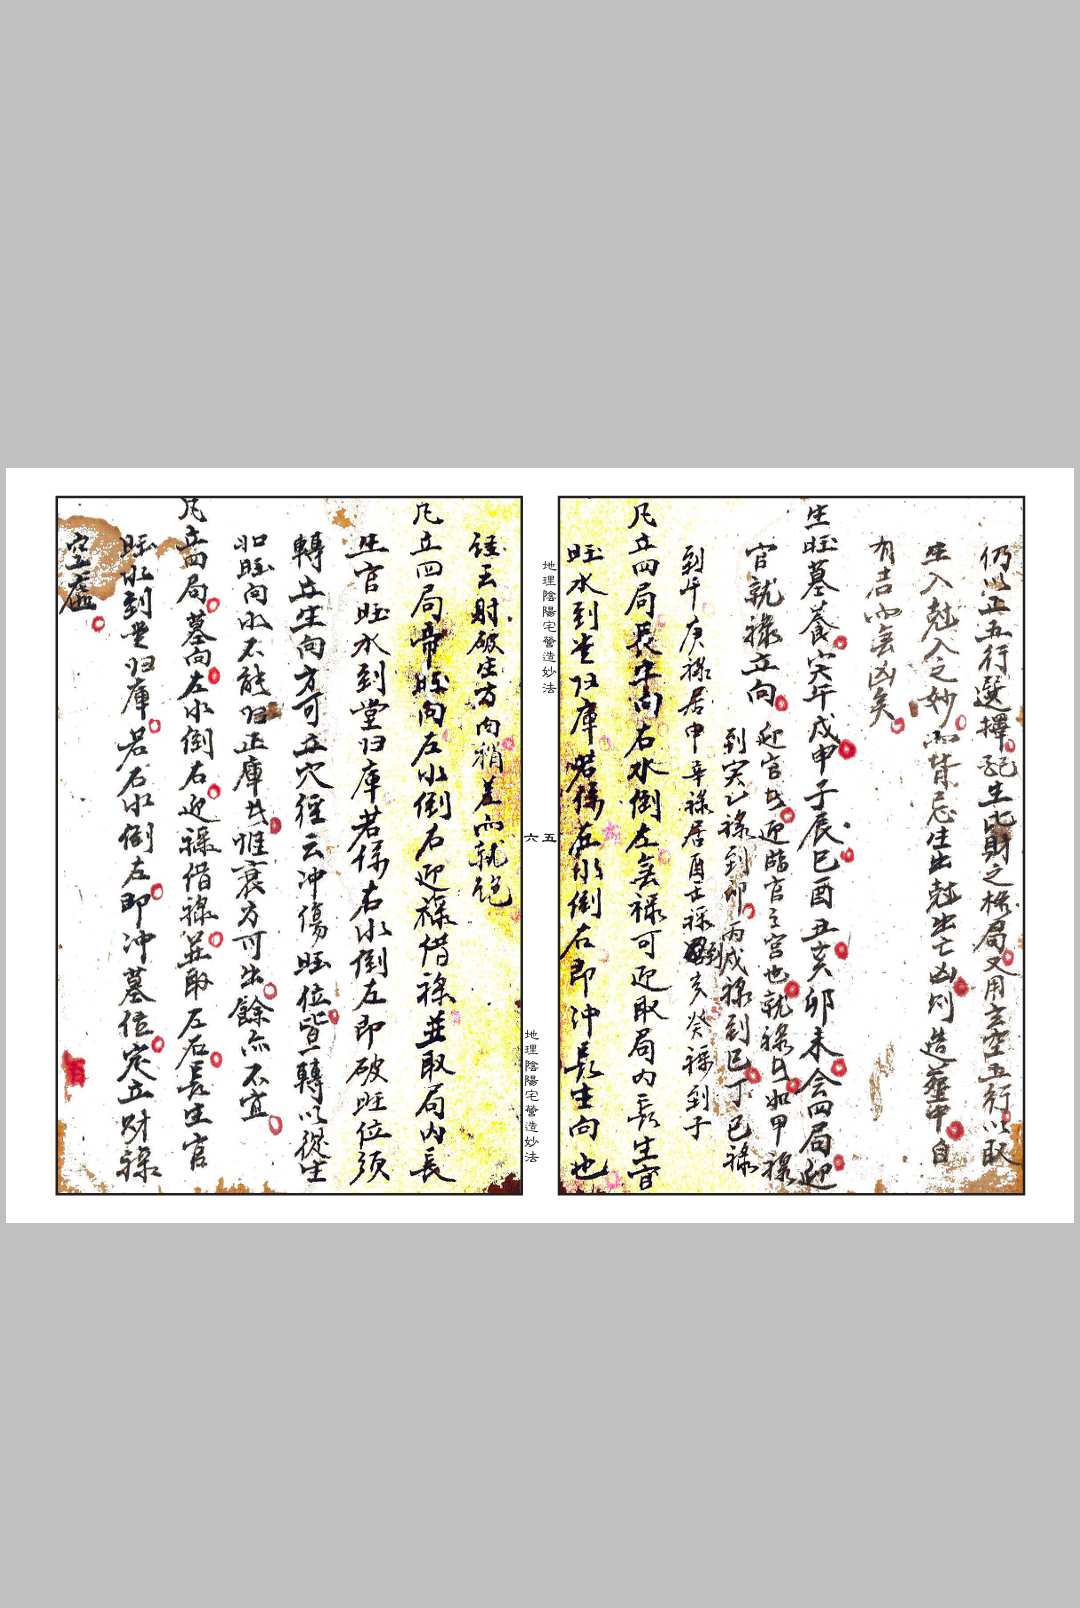 仍以正五行選擇配生比財之格局又用玄空五行以取
生入尅入之妙而禁忌生出尅出亡凶則造塟中自
有吉而無凶矣
生旺墓養寅午戌申子辰巳酉丑亥卯未会四局迎
官就祿立向
迎官者迎臨官之宮也就祿者如甲祿
到寅乙祿到卯丙戊祿到巳丁己祿
到午庚祿居申辛祿居酉壬祿到亥癸祿到子
凡立四局長生向右水倒左無祿可迎取局内長生官
旺水到堂归庫若係左水倒右即冲長生向也
地理陰陽宅營造妙法
五
六
地理陰陽宅營造妙法
經云財破生方向稍差而就絕
凡立四局帝旺向左水倒右迎祿借祿並取局内長
生官旺水到堂归庫若係右水倒左即破旺位须
轉立生向方可立穴經云冲傷旺位皆轉以從生
如旺向水不能归正庫者惟衰方可出餘亦不宜
凡立四局墓向左水倒右迎祿借祿並取左右長生官
旺水到堂归庫若右水倒左即冲墓位定立财祿
空虛